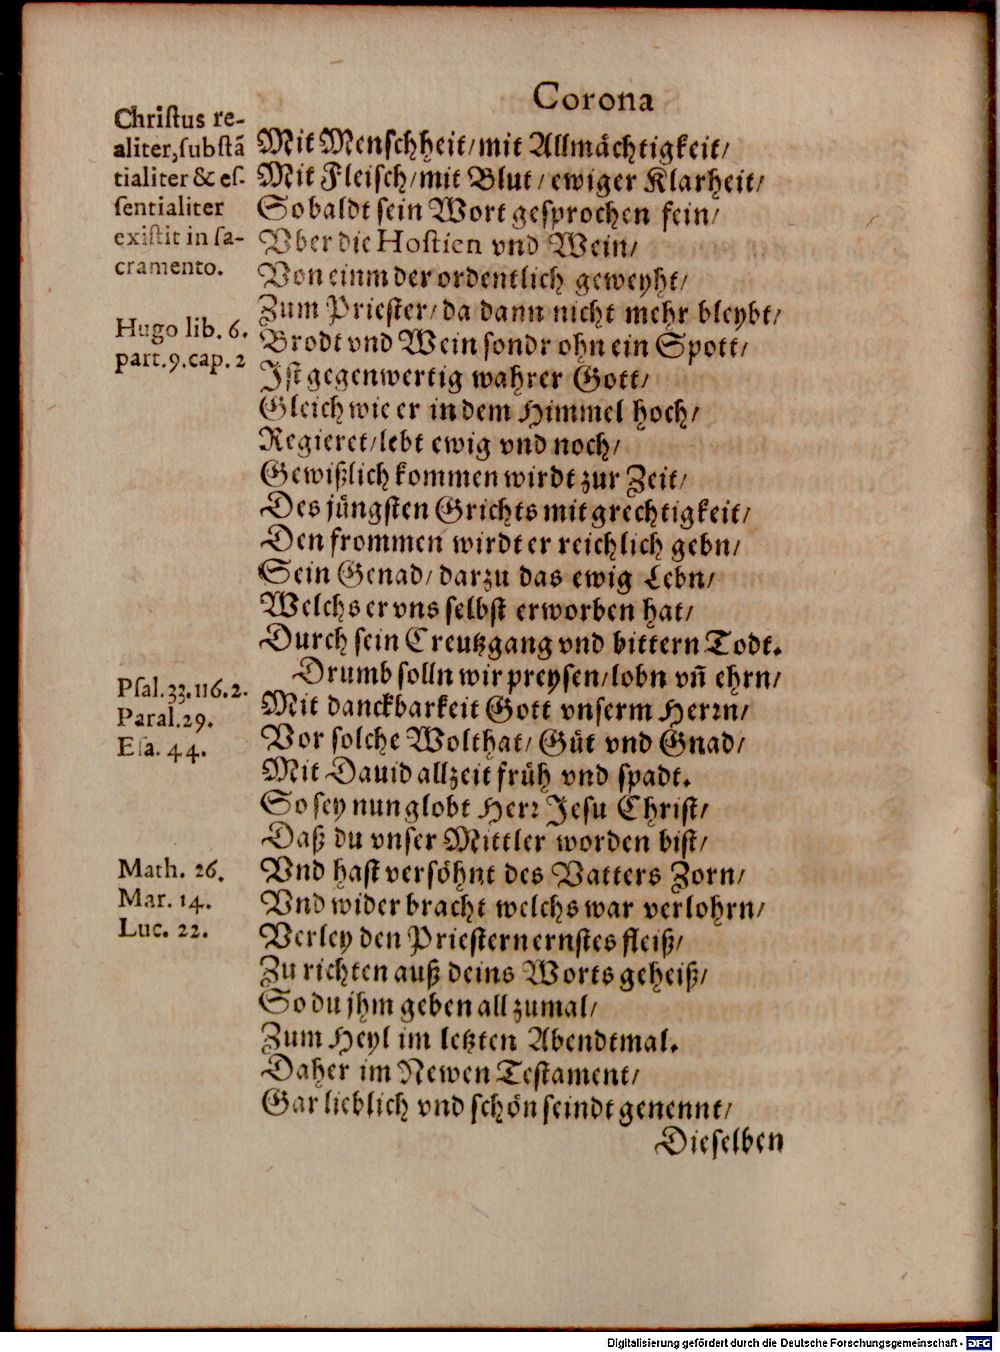 Corona
Christus re-
aliter, substã
tialiter & es-
sentialiter
existit in sa-
cramento.
Hugo lib. 6.
part. 9. cap. 2
Mit Menschheit/ mit Allmächtigkeit/
Mit Fleisch/ mit Blut/ ewiger Klarheit/
Sobaldt sein Wort gesprochen sein/
Vber die Hostien vnd Wein/
Von einm der ordentlich geweyht/
Zum Priester/ da dann nicht mehr bleybt/
Brodt vnd Wein sondr ohn ein Spott/
Ist gegenwertig wahrer Gott/
Gleich wie er in dem Himmel hoch/
Regieret/ lebt ewig vnd noch/
Gewißlich kommen wirdt zur Zeit/
Des jüngsten Grichts mit grechtigkeit/
Den frommen wirdt er reichlich gebn/
Sein Genad/ darzu das ewig Lebn/
Welchs er vns selbst erworben hat/
Durch sein Creutzgang vnd bittern Todt.
Drumb solln wir preysen/ lobn vñ ehrn/
Psal. 33. 116. 2.
Paral. 29.
Esa. 44.
Mit danckbarkeit Gott vnserm Herrn/
Vor solche Wolthat/ Güt vnd Gnad/
Mit Dauid allzeit früh vnd spadt.
So sey nun globt Herr Jesu Christ/
Daß du vnser Mittler worden bist/
Math. 26.
Mar. 14.
Luc. 22.
Vnd hast versöhnt des Vatters Zorn/
Vnd wider bracht welchs war verlohrn/
Verley den Priestern ernstes fleiß/
Zu richten auß deins Worts geheiß/
So du jhm geben all zumal/
Zum Heyl im letzten Abendtmal.
Daher im Newen Testament/
Gar lieblich vnd schön seindt genennt/
Dieselben
Digitalisierung gefördert durch die Deutsche Forschungsgemeinschaft - DFG